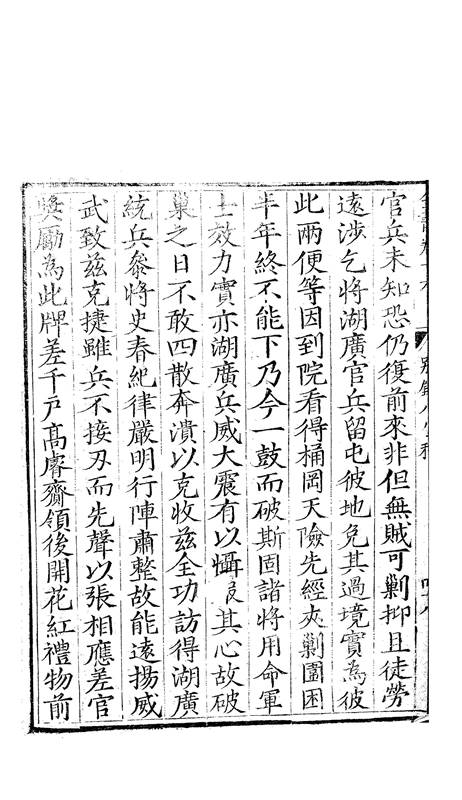 官兵未知恐仍復前來非但無賊可剿抑且徒勞
遠涉乞將湖廣官兵留屯彼地免其過境實為彼
此兩便等因到院看得桶岡天險先經夾剿圍困
半年終不能下乃今一鼓而破斯固諸將用命軍
士效力實亦湖廣兵威大震有以懾其心故破
巢之日不敢四散奔潰以克收茲全功訪得湖廣
統兵叅將史春紀律嚴明行陣肅整故能遠揚威
武致茲克捷雖兵不接刃而先聲以張相應差官
奬勵為此牌差千戶高睿齎領後開花紅禮物前